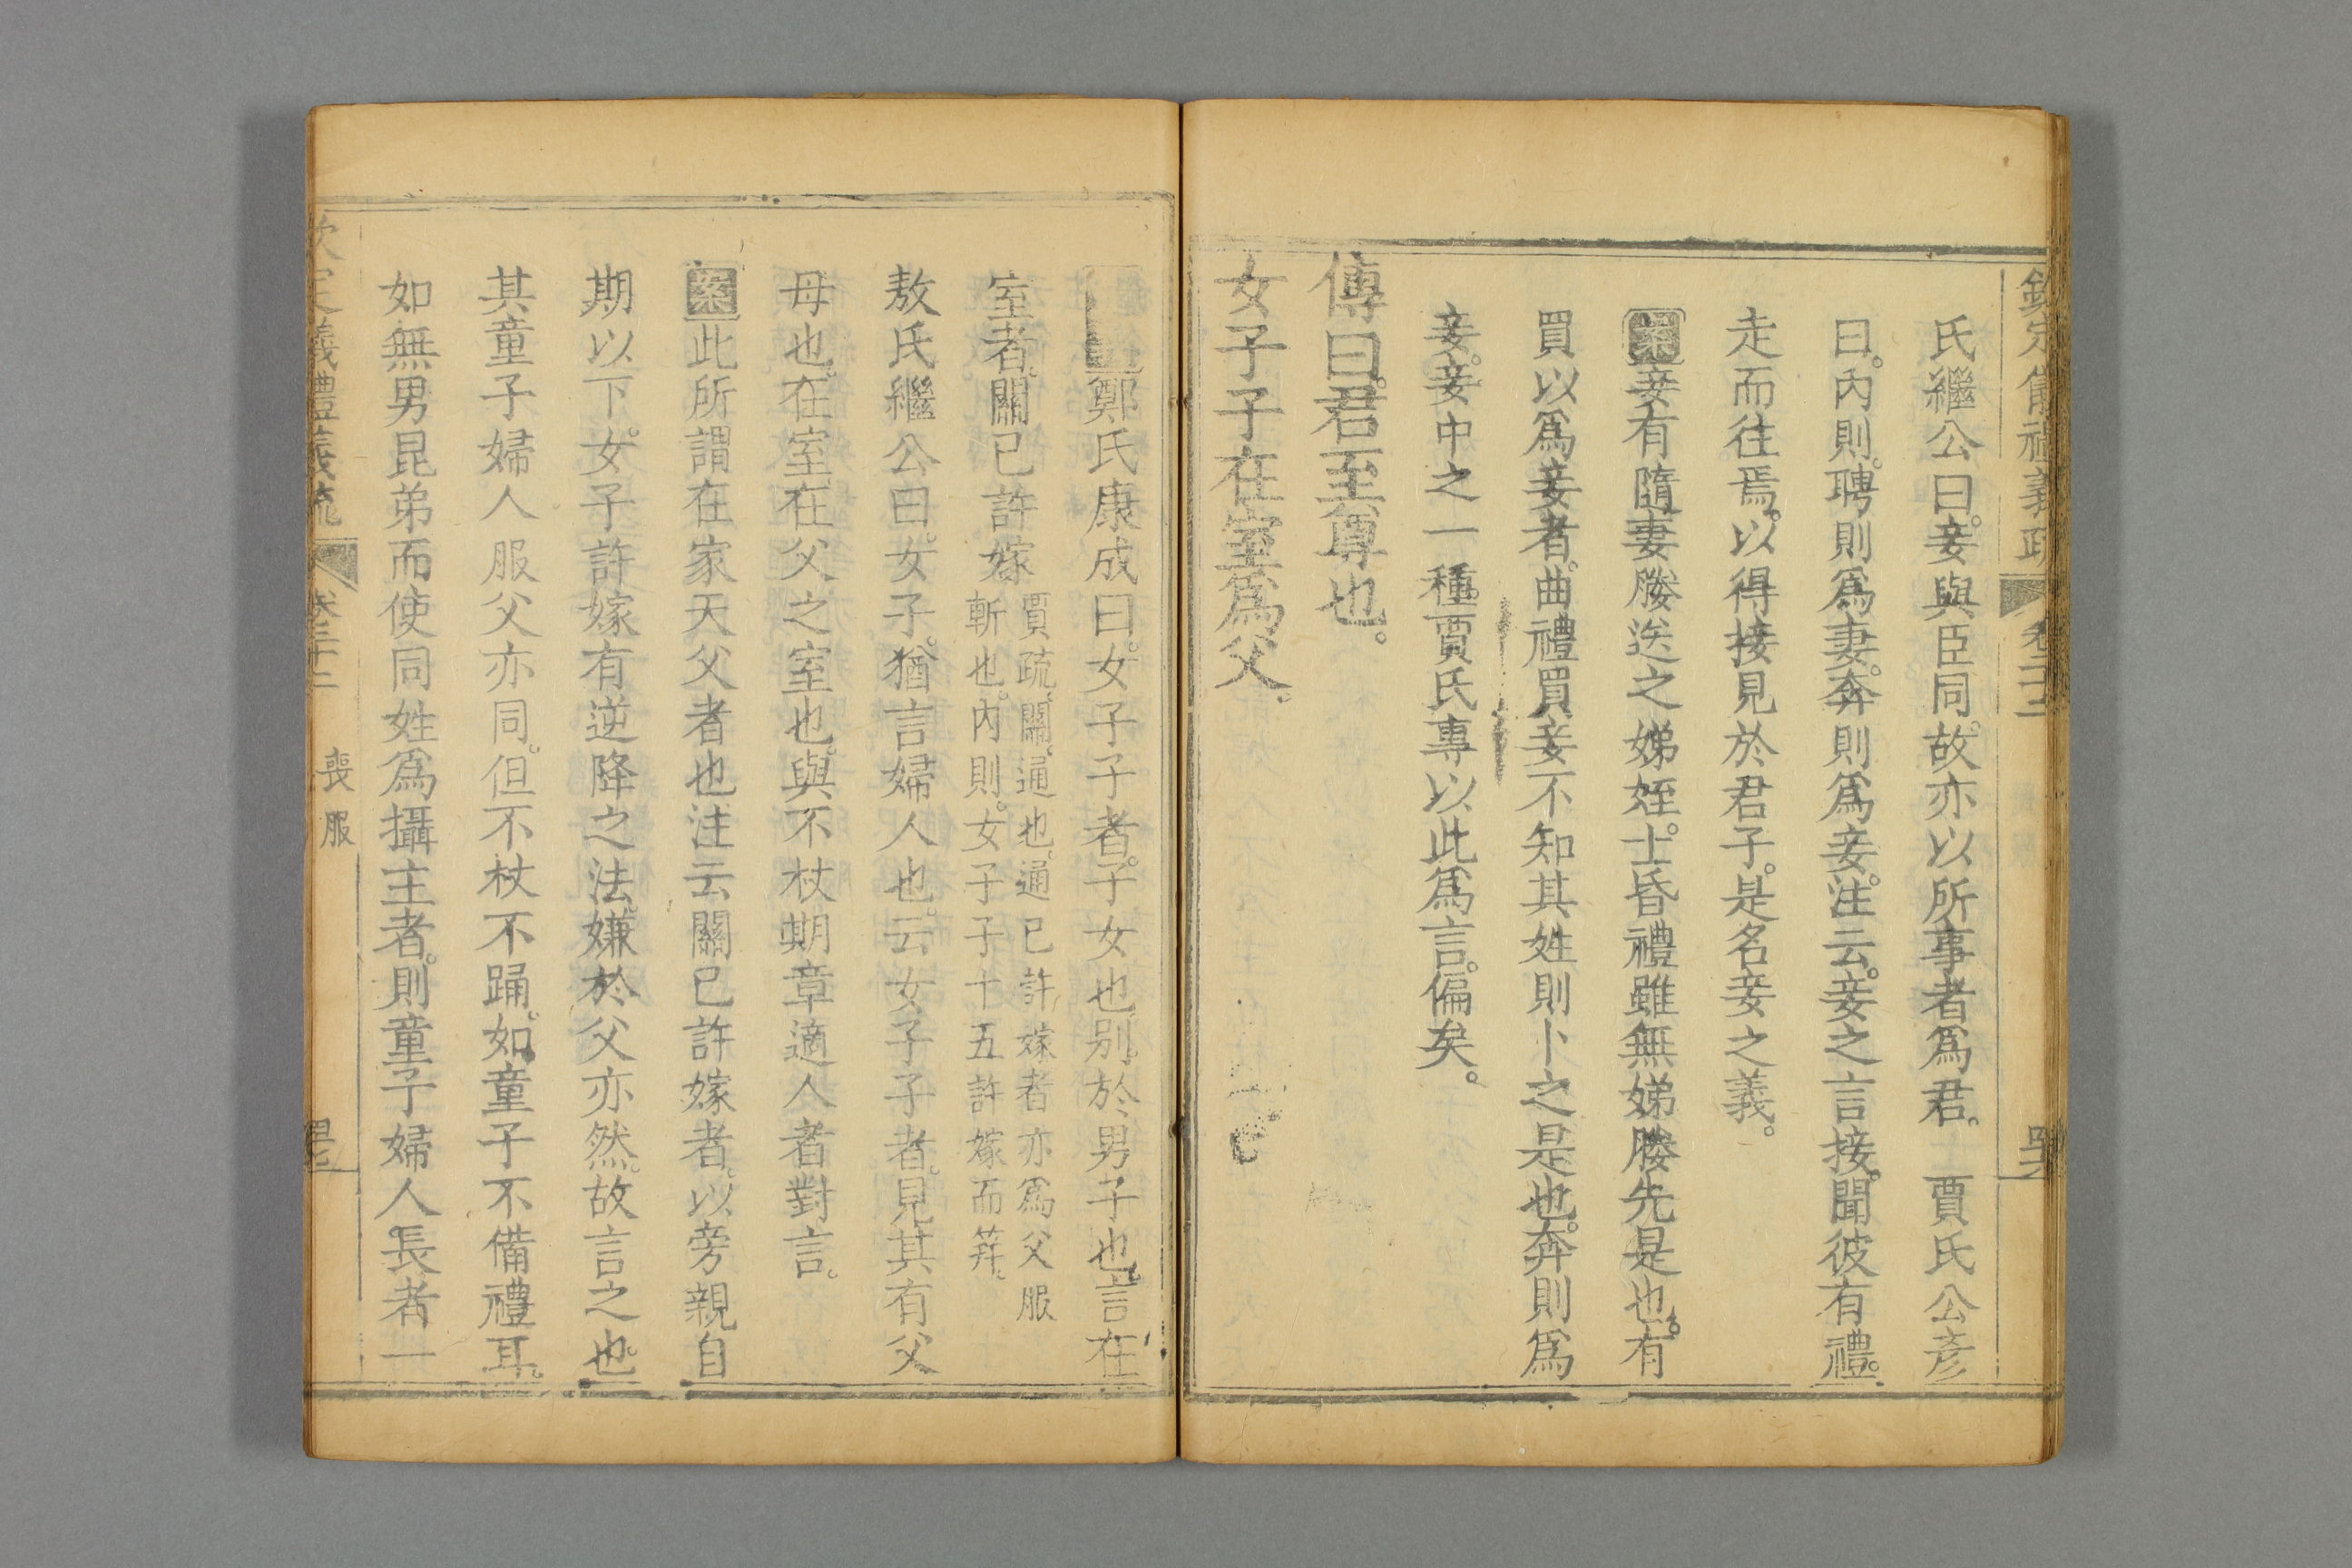 欽定儀禮義疏 卷二十二
氏繼公曰。妾與臣同。故亦以所事者爲君。 賈氏公彥
曰。內則。聘則爲妻。奔則爲妾。注云。妾之言接。聞彼有禮。
走而往焉。以得接見於君子。是名妾之義。
案妾有隨妻媵送之娣姪。士昏禮雖無娣媵先是也。有
買以爲妾者。曲禮買妾不知其姓則卜之是也。奔則爲
妾。妾中之一種。賈氏專以此爲言。偏矣。
傳曰。君至尊也。
女子子在室爲父。
鄭氏康成曰。女子子者。子女也。別於男子也。言在
室者。關已許嫁
賈疏。關。通也。通已許嫁者亦爲父服
斬也。內則。女子子十五許嫁而筓。
敖氏繼公曰。女子。猶言婦人也。云女子子者。見其有父
母也。在室在父之室也。與不杖期章適人者對言。
案此所謂在家天父者也注云關已許嫁者。以旁親自
期以下。女子許嫁有逆降之法。嫌於父亦然。故言之也。
其童子婦人服父亦同。但不杖不踊。如童子不備禮耳。
如無男昆弟而使同姓爲攝主者。則童子婦人長者一
欽定儀禮義疏 卷二十二 喪服